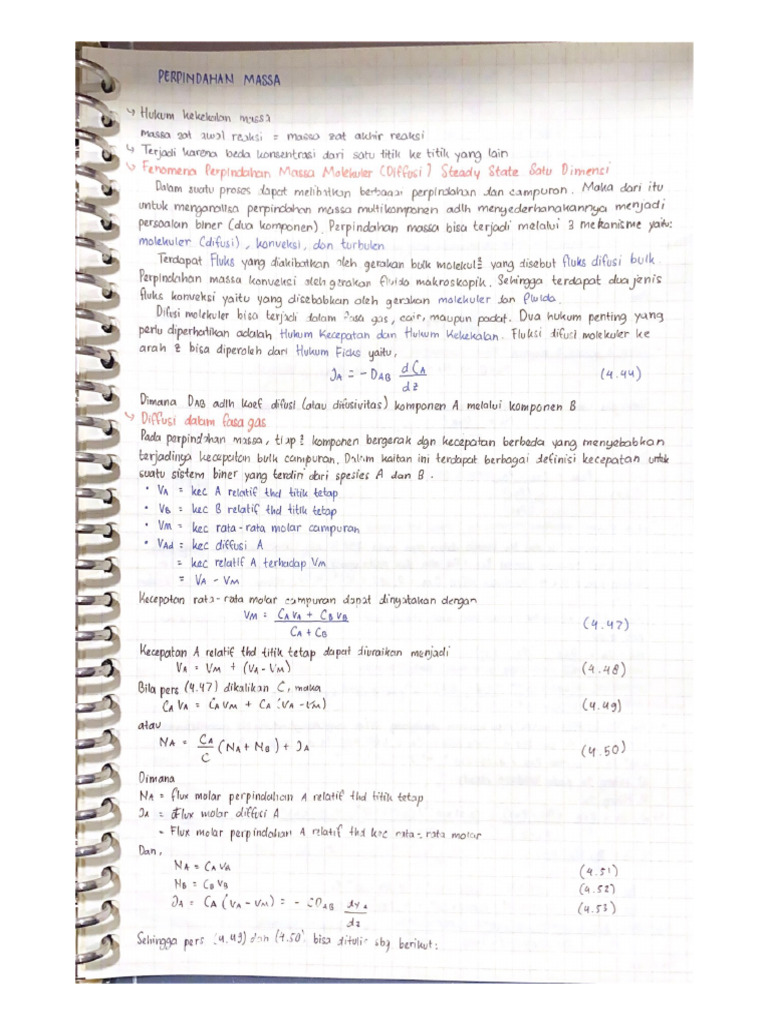 PERPINDAHAN MASSA
↳ Hukum kekekalan massa
massa zat awal reaksi = massa zat akhir reaksi
↳ Terjadi karena beda konsentrasi dari satu titik ke titik yang lain
↳ Fenomena Perpindahan Massa Molekuler (Diffusi) Steady State Satu Dimensi
Dalam suatu proses dapat melibatkan berbagai perpindahan dan campuran. Maka dari itu
untuk menganalisa perpindahan massa multikomponen adlh menyederhanakannya menjadi
persoalan biner (dua komponen). Perpindahan massa bisa terjadi melalui 3 mekanisme yaitu:
molekuler (difusi), konveksi, dan turbulen
Terdapat Fluks yang diakibatkan oleh gerakan bulk molekul² yang disebut fluks difusi bulk.
Perpindahan massa konveksi oleh gerakan fluida makroskopik. Sehingga terdapat dua jenis
fluks konveksi yaitu yang disebabkan oleh gerakan molekuler dan Fluida.
Difusi molekuler bisa terjadi dalam fasa gas, cair, maupun padat. Dua hukum penting yang
perlu diperhatikan adalah Hukum Kecepatan dan Hukum Kekekalan. Fluksi difusi molekuler ke
arah z bisa diperoleh dari Hukum Ficks yaitu,
J_A = -D_AB dC_A/dz (4.44)
Dimana D_AB adlh koef difusi (atau difusivitas) komponen A melalui komponen B
↳ Diffusi dalam fasa gas
Pada perpindahan massa, tiap² komponen bergerak dgn kecepatan berbeda yang menyebabkan
terjadinya kecepatan bulk campuran. Dalam kaitan ini terdapat berbagai definisi kecepatan untuk
suatu sistem biner yang terdiri dari spesies A dan B.
• V_A = kec A relatif thd titik tetap
• V_B = kec B relatif thd titik tetap
• V_M = kec rata-rata molar campuran
• V_Ad = kec diffusi A
= kec relatif A terhadap V_M
= V_A - V_M
Kecepatan rata-rata molar campuran dapat dinyatakan dengan
V_M = (C_A V_A + C_B V_B)/(C_A + C_B) (4.47)
Kecepatan A relatif thd titik tetap dapat diuraikan menjadi
V_A = V_M + (V_A - V_M) (4.48)
Bila pers (4.47) dikalikan C, maka
C_A V_A = C_A V_M + C_A (V_A - V_M) (4.49)
atau
N_A = C_A/C (N_A + N_B) + J_A (4.50)
Dimana
N_A = flux molar perpindahan A relatif thd titik tetap
J_A = Flux molar diffusi A
= Flux molar perpindahan A relatif thd kec rata-rata molar
Dan,
N_A = C_A V_A (4.51)
N_B = C_B V_B (4.52)
J_A = C_A (V_A - V_M) = - CD_AB dy_A/dz (4.53)
Sehingga pers (4.49) dan (4.50) bisa ditulis sbg berikut: